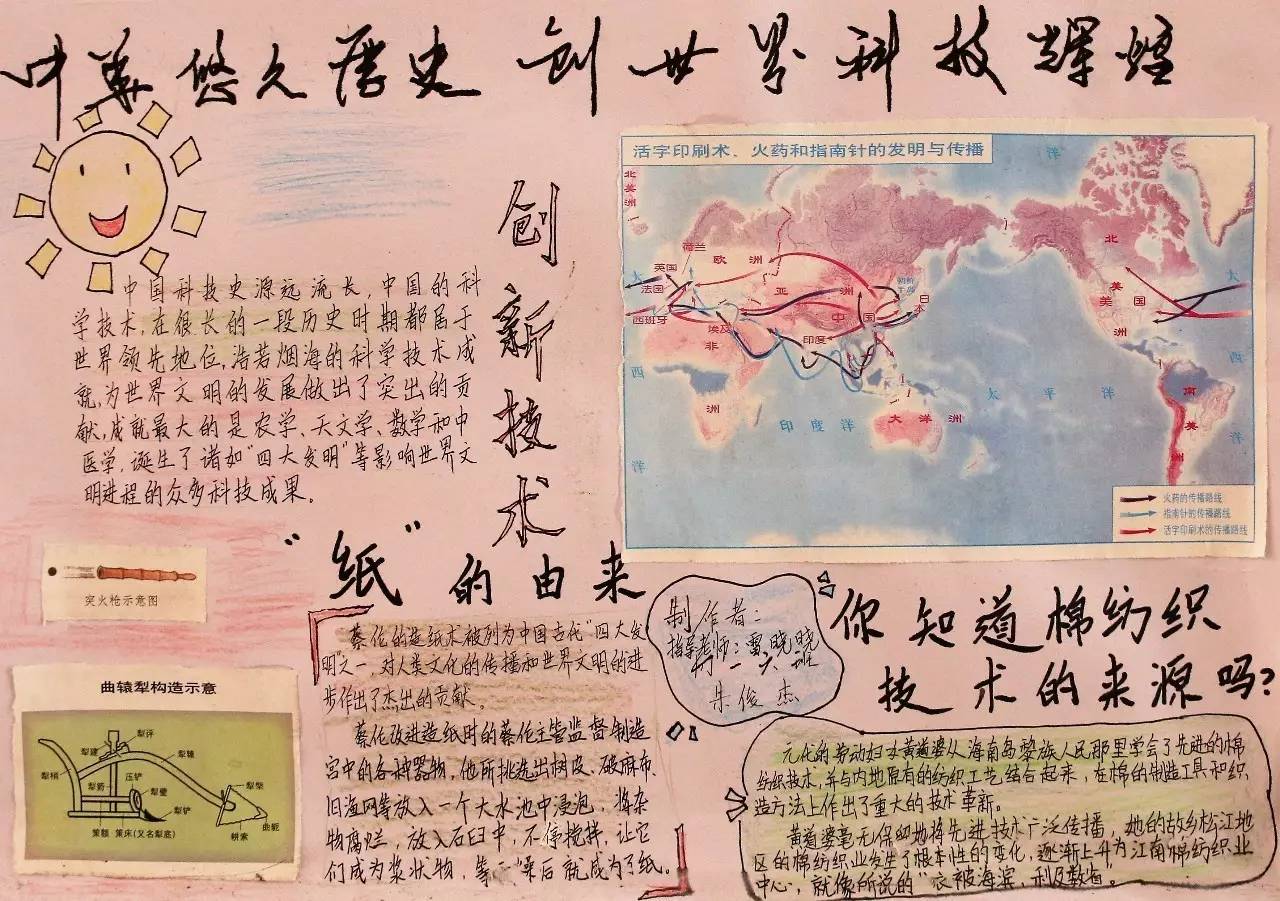 中华悠久历史 创世界科技辉煌
创新技术
中国科技史源远流长，中国的科
学技术，在很长的一段历史时期都居于
世界领先地位，浩若烟海的科学技术成
就，为世界文明的发展做出了突出的贡
献，成就最大的是农学、天文学、数学和中
医学，诞生了诸如“四大发明”等影响世界文
明进程的众多科技成果。
活字印刷术、火药和指南针的发明与传播
北美洲
洋
荷兰
英国
欧洲
法国
西班牙
亚洲
朝鲜半岛
日本
中国
埃及
印度
非
洲
大洋洲
印度洋
太平洋
西
洋
北
美
洲
美国
南
美
洲
大
西
洋
火药的传播路线
指南针的传播路线
活字印刷术的传播路线
突火枪示意图
曲辕犁构造示意
犁评
犁建
犁辕
犁梢
压铲
犁箭
犁壁
犁铲
犁槃
策额
策床(又名犁底)
耕索
曲轭
“纸”的由来
蔡伦的造纸术被列为中国古代“四大发
明”之一，对人类文化的传播和世界文明的进
步作出了杰出的贡献。
蔡伦改进造纸时的蔡伦主管监督制造
宫中的各种器物，他所挑选出树皮、破麻布、
旧渔网等放入一个大水池中浸泡，将杂
物腐烂，放入石臼中，不停搅拌，让它
们成为浆状物，等干燥后就成为了纸。
制作者：
指导老师：雷晓晓
一六班
朱俊杰
你知道棉纺织
技术的来源吗？
元代的劳动妇女黄道婆从海南岛黎族人民那里学会了先进的棉
纺织技术，并与内地原有的纺织工艺结合起来，在棉的制造工具和织
造方法上作出了重大的技术革新。
黄道婆毫无保留地将先进技术广泛传播，她的故乡松江地
区的棉纺织业发生了根本性的变化，逐渐上升为江南棉纺织业
中心，就像所说的“衣被海滨，利及数省”。